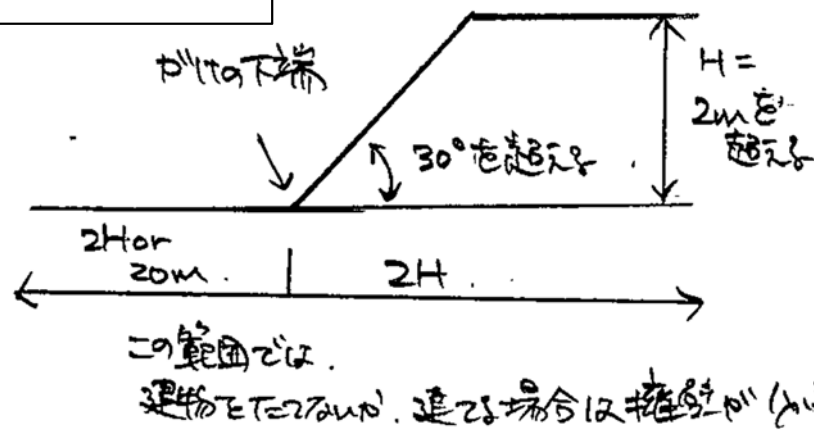 がけの下端
H=
2mを
超える
30°を超える
2Hor
20m.
2H
この範囲では.
建物をたてないか.建てる場合は擁壁が